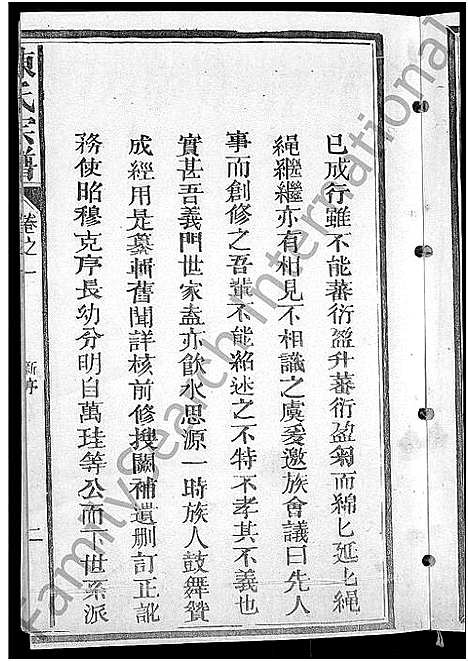 已成行雖不能蕃衍盈升蕃衍盈匊而綿匕延匕繩
繩繼繼亦有相見不相識之虞爰邀族會議曰先人
事而創修之吾輩不能紹述之不特不孝其不義也
實甚吾義門世家盍亦飲水思源一時族人鼓舞贊
成經用是纂輯舊聞詳核前修搜闕補遺删訂正訛
務使昭穆克序長幼分明自萬珪等公而下世系派
陳氏宗譜
卷之一
新序
二
FamilySearch International